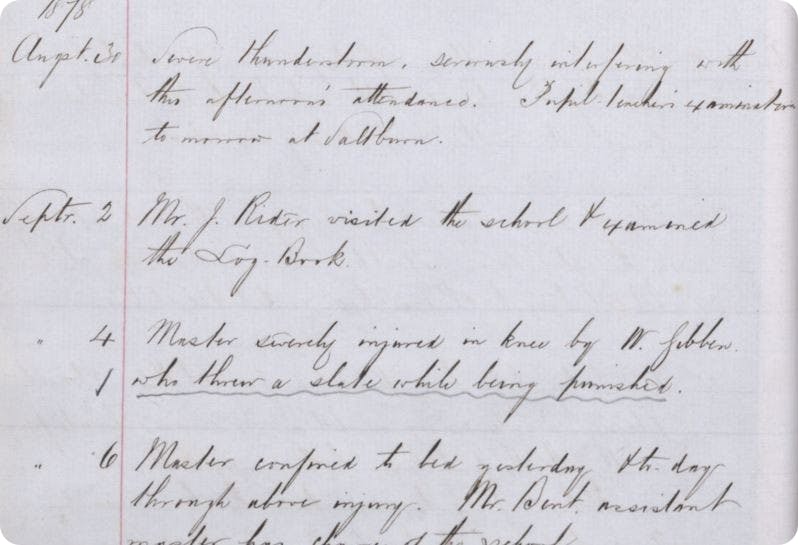 1878
Augst. 30 Severe thunderstorm, seriously interfering with
this afternoon's attendance. Pupil-teacher's examination
to morrow at Saltburn.
Septr. 2 Mr. J. Rider visited the school & examined
the Log-Book.
" 4 Master severely injured in knee by W. Gibben.
who threw a slate while being punished.
" 6 Master confined to bed yesterday & to-day
through above injury. Mr. Bent. assistant
master has charge of the school